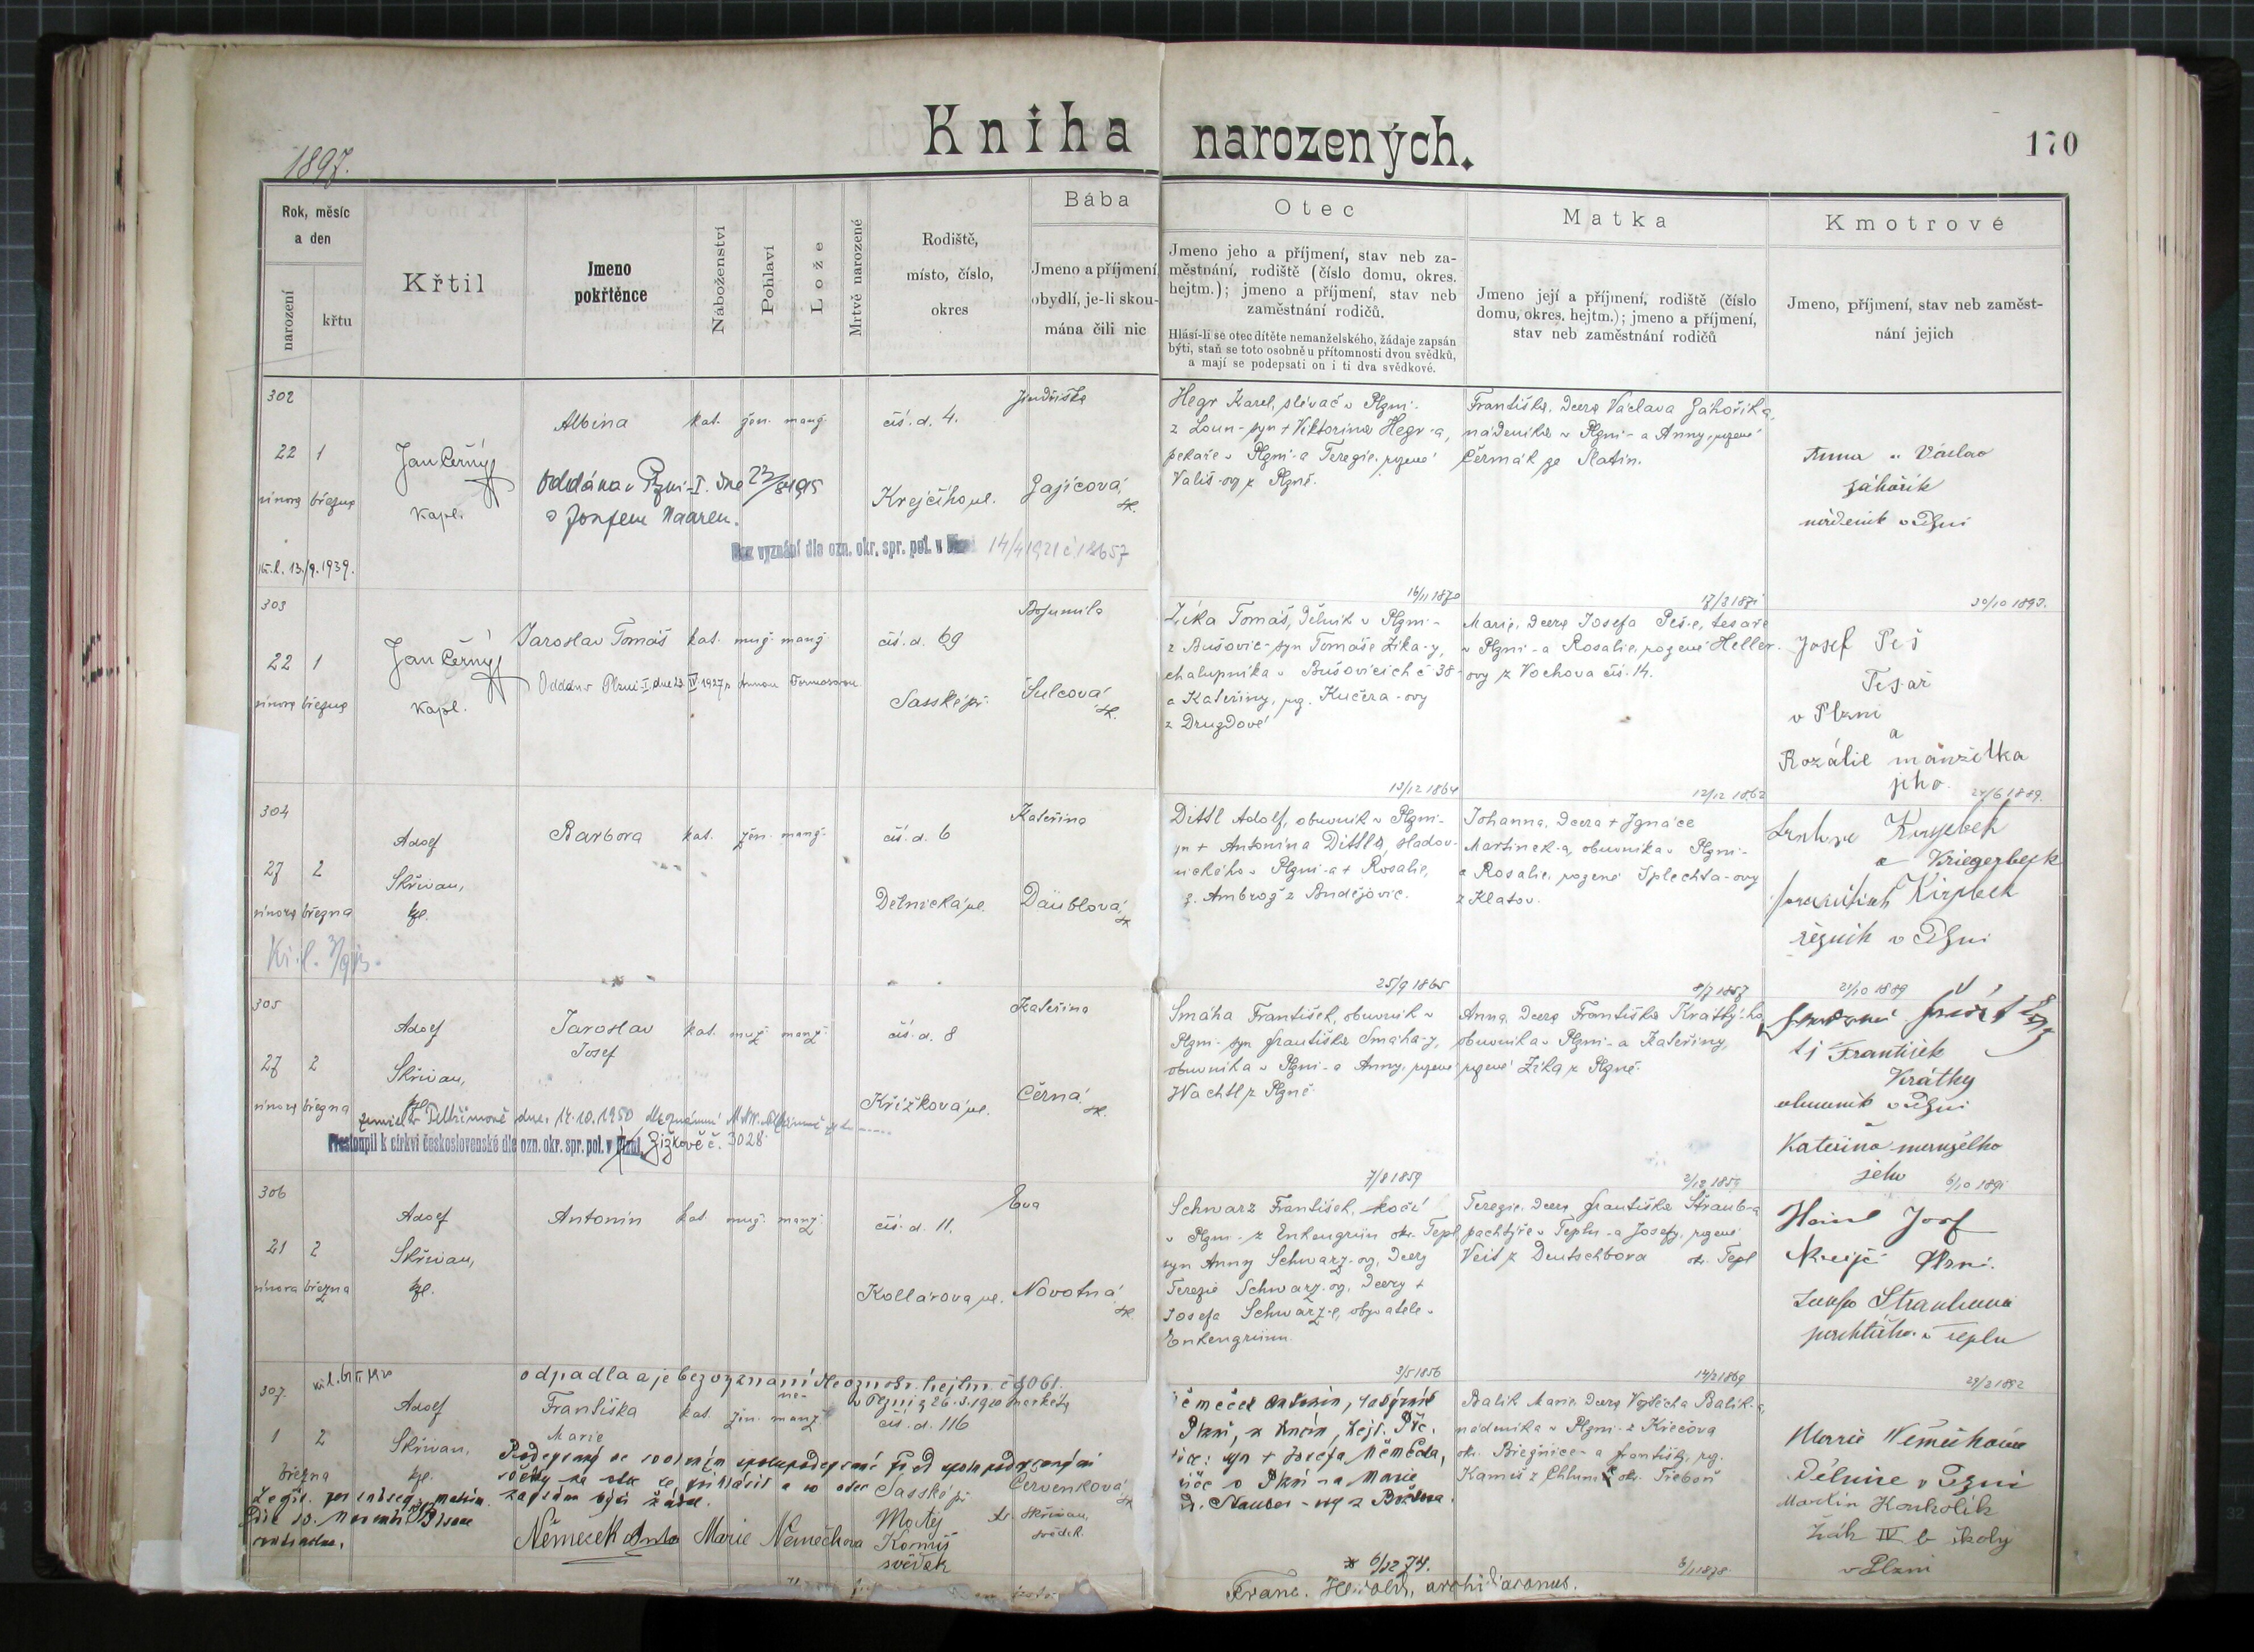 1897.
Kniha narozených.
170
Rok, měsíc
a den
narození
křtu
Křtil
Jmeno
pokřtěnce
Náboženství
Pohlaví
Lože
Mrtvě narozené
Rodiště,
místo, číslo,
okres
Bába
Jmeno a příjmení,
obydlí, je-li skou-
mána čili nic
Otec
Jmeno jeho a příjmení, stav neb za-
městnání, rodiště (číslo domu, okres.
hejtm.); jmeno a příjmení, stav neb
zaměstnání rodičů.
Hlásí-li se otec dítěte nemanželského, žádaje zapsán
býti, staň se toto osobně u přítomnosti dvou svědků,
a mají se podepsati on i ti dva svědkové.
Matka
Jmeno její a příjmení, rodiště (číslo
domu, okres. hejtm.); jmeno a příjmení,
stav neb zaměstnání rodičů
Kmotrové
Jmeno, příjmení, stav neb zaměst-
nání jejich
302
22 1
února března
Jan Černý
kapl.
Albina kat. žen. manž.
Oddána v Plzni-I. dne
s Josefem
Bez vyznání dle ozn. okr. spr. pol. v Plzni 14/4 1921 č. 18657
kř. l. 13./9. 1939.
čís. d. 4.
Krejčího ul.
Jindřiška
Zajícová,
zk.
Hegr Karel, slévač v Plzni-
z Loun- syn + Viktorina Hegr-a,
pekaře v Plzni-a Terezie, rozené
Vališ-ový z Plzně.
16/11 1870
Františka, dcera Václava Záhoříka,
nádeníka v Plzni- a Anny, rozené
Čermák ze Slatin.
17/3 1871
Anna a Václav
Záhořík
nádeník v Plzni
30/10 1893.
303
22 1
února března
Jan Černý
kapl.
Jaroslav Tomáš kat. muž. manž.
Oddán v Plzni-I, dne 23. IV. 1927 s Annou
čís. d. 69
Sasské př.
Bohumila
Šulcová,
zk.
Zíka Tomáš, dělník v Plzni-
z Bušovic- syn Tomáše Zíka-y,
chalupníka v Bušovicích č 38-
a Kateřiny, roz. Kučera-ovy
z Druzdové
13/12 1864
Marie, dcera Josefa Peš-e, tesaře
v Plzni- a Rosalie, rozené Heller-
ovy z Vochova čís. 14.
12/12 1862
Josef Peš
Tesař
v Plzni
a
Rozálie manželka
jeho
24/6 1889.
304
27 2
února března
Adolf
Skřivan,
kpl.
Barbora kat. žen. manž.
čís. d. 6
Dělnická ul.
Kateřina
Däublová,
zk.
Dittl Adolf, obuvník v Plzni-
syn + Antonína Dittla, sladov-
nického v Plzni-a + Rosalie,
r. Ambrož z Budějovic.
25/9 1865
Johanna, dcera + Ignáce
Martinek-a, obuvníka v Plzni-
a Rosalie, rozené Splechta-ovy
z Klatov.
8/7 1857
řezník v Plzni
21/10 1889
305
27 2
února března
Adolf
Skřivan,
kpl.
Jaroslav
Josef
kat. muž. manž.
Zemřel v Pelhřimově dne 14.10.1950
Přestoupil k církvi československé dle ozn. okr. spr. pol. v Plzni, Žižkově č. 3028
čís. d. 8
Křížková ul.
Kateřina
Černá,
zk.
Smáha František, obuvník v
Plzni- syn Františka Smáha-y,
obuvníka v Plzni-a Anny, rozené
Wachtl z Plzně
7/8 1859
Anna, dcera Františka Krátký-ho,
obuvníka v Plzni-a Kateřiny,
rozené Zíka z Plzně.
2/12 1859
tj František
Krátký
obuvník v Plzni
Kateřina manželka
jeho
6/10 1891
306
21 2
února března
Adolf
Skřivan,
kpl.
Antonín kat. muž. manž.
čís. d. 11.
Kollárova ul.
Eva
Novotná,
zk.
Schwarz František, kočí
v Plzni- z Enkengrün okr. Tepl
syn Anny Schwarz-ový, dcery
Terezie Schwarz-ový, dcery +
Josefa Schwarz-e, obyvatele v
Enkengrünu.
3/5 1856
Terezie, dcera Františka Straub-a
pachtýře v Teplu-a Josefy, rozené
Veit z Deutschbora okr. Tepl
14/2 1869
Josef
Krejčí Plzni.
v Teplu
29/2 1892
307.
1 2
března
Adolf
Skřivan,
kpl.
odpadla a je bez vyznání dle ozn. okr. hejtm. č 8061.
v Plzni z 26.3.1920
Františka
Marie
kat. žen. nemanž.
čís. d. 116
Sasské př
Markéta
Červenková,
zk.
Podepsaný se
za otce se přihlásil a co otec
zapsán býti žádá.
Němeček Anto Marie Němečkova
Matěj
Kamiš
svědek
Ad. Skřivan,
svědek.
Němeček Antonín,
syn + Josefa Němečka,
* 6/12 74.
Franc. Herold, archidiaconus.
Balík Marie, dcera Vojtěcha Balík-a,
nádeníka v Plzni- z Křečova
okr. Březnice- a Františky, roz.
Kamiš z Chlumu okr. Třeboň
Marie Němečková
Dělnice v Plzni
Martin Konholík
žák IV b školy
v Plzni